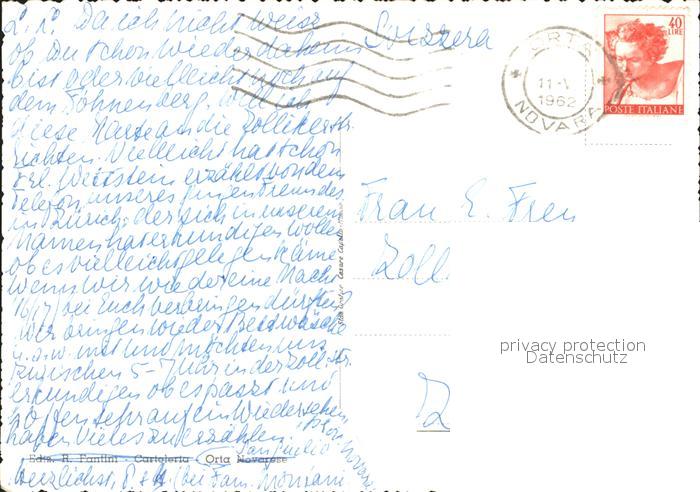 Da ich nicht weiss
ob Du schon wieder daheim
bist oder vielleicht noch auf
dem Sonnenberg, will ich
diese Karte an die Zollikerstr.
richten. Vielleicht hat schon
Frl. Wettstein erzählt von dem
Telefon unseres
in Zürich, der sich in unserem
Namen hat erkundigen wollen
ob es vielleicht gelegen käme
wenn wir wieder eine Nacht
16/17 bei Euch verbringen dürften
Wir bringen wieder Bettwäsche
u.s.w. mit und möchten uns
zwischen 5-7 Uhr in der Zoll.str.
erkundigen ob es passt und
hoffen sehr auf ein Wiedersehen
haben Vieles zu erzählen.
Herzlichst (bei Fam.
Svizzera
ORTA
11-V
1962
NOVARA
40
LIRE
POSTE ITALIANE
Frau E. Frey
Zoll
Z
privacy protection
Datenschutz
Ediz. R. Fantini - Cartoleria - Orta Novarese